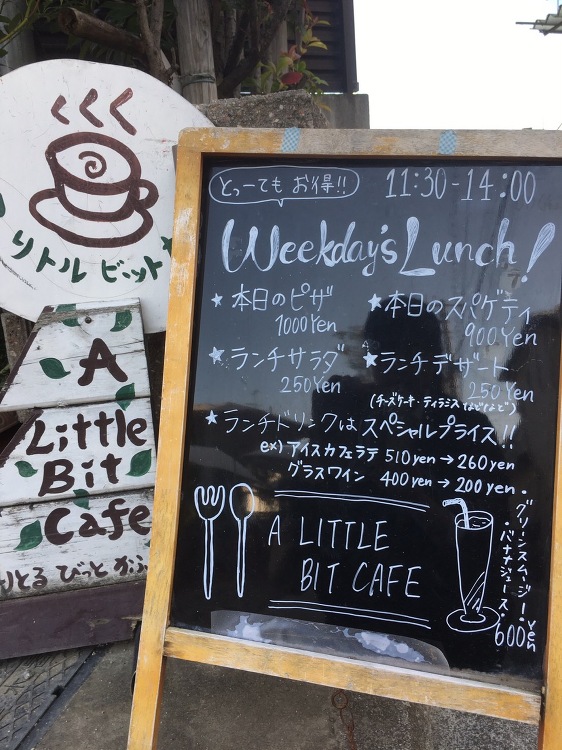 リトル ビット
A
Little
Bit
Cafe
りとる びっと かふ
とってもお得!!
11:30-14:00
Weekday's Lunch!
★本日のピザ
1000Yen
★本日のスパゲティ
900Yen
★ランチサラダ
250Yen
★ランチデザート
250Yen
(チーズケーキ・ティラミスなどなど)
★ランチドリンクはスペシャルプライス!!
ex) アイスカフェラテ 510yen→260yen
グラスワイン 400yen→200yen
A LITTLE
BIT CAFE
・グリーンスムージー!
・バナナジュース!
600yen